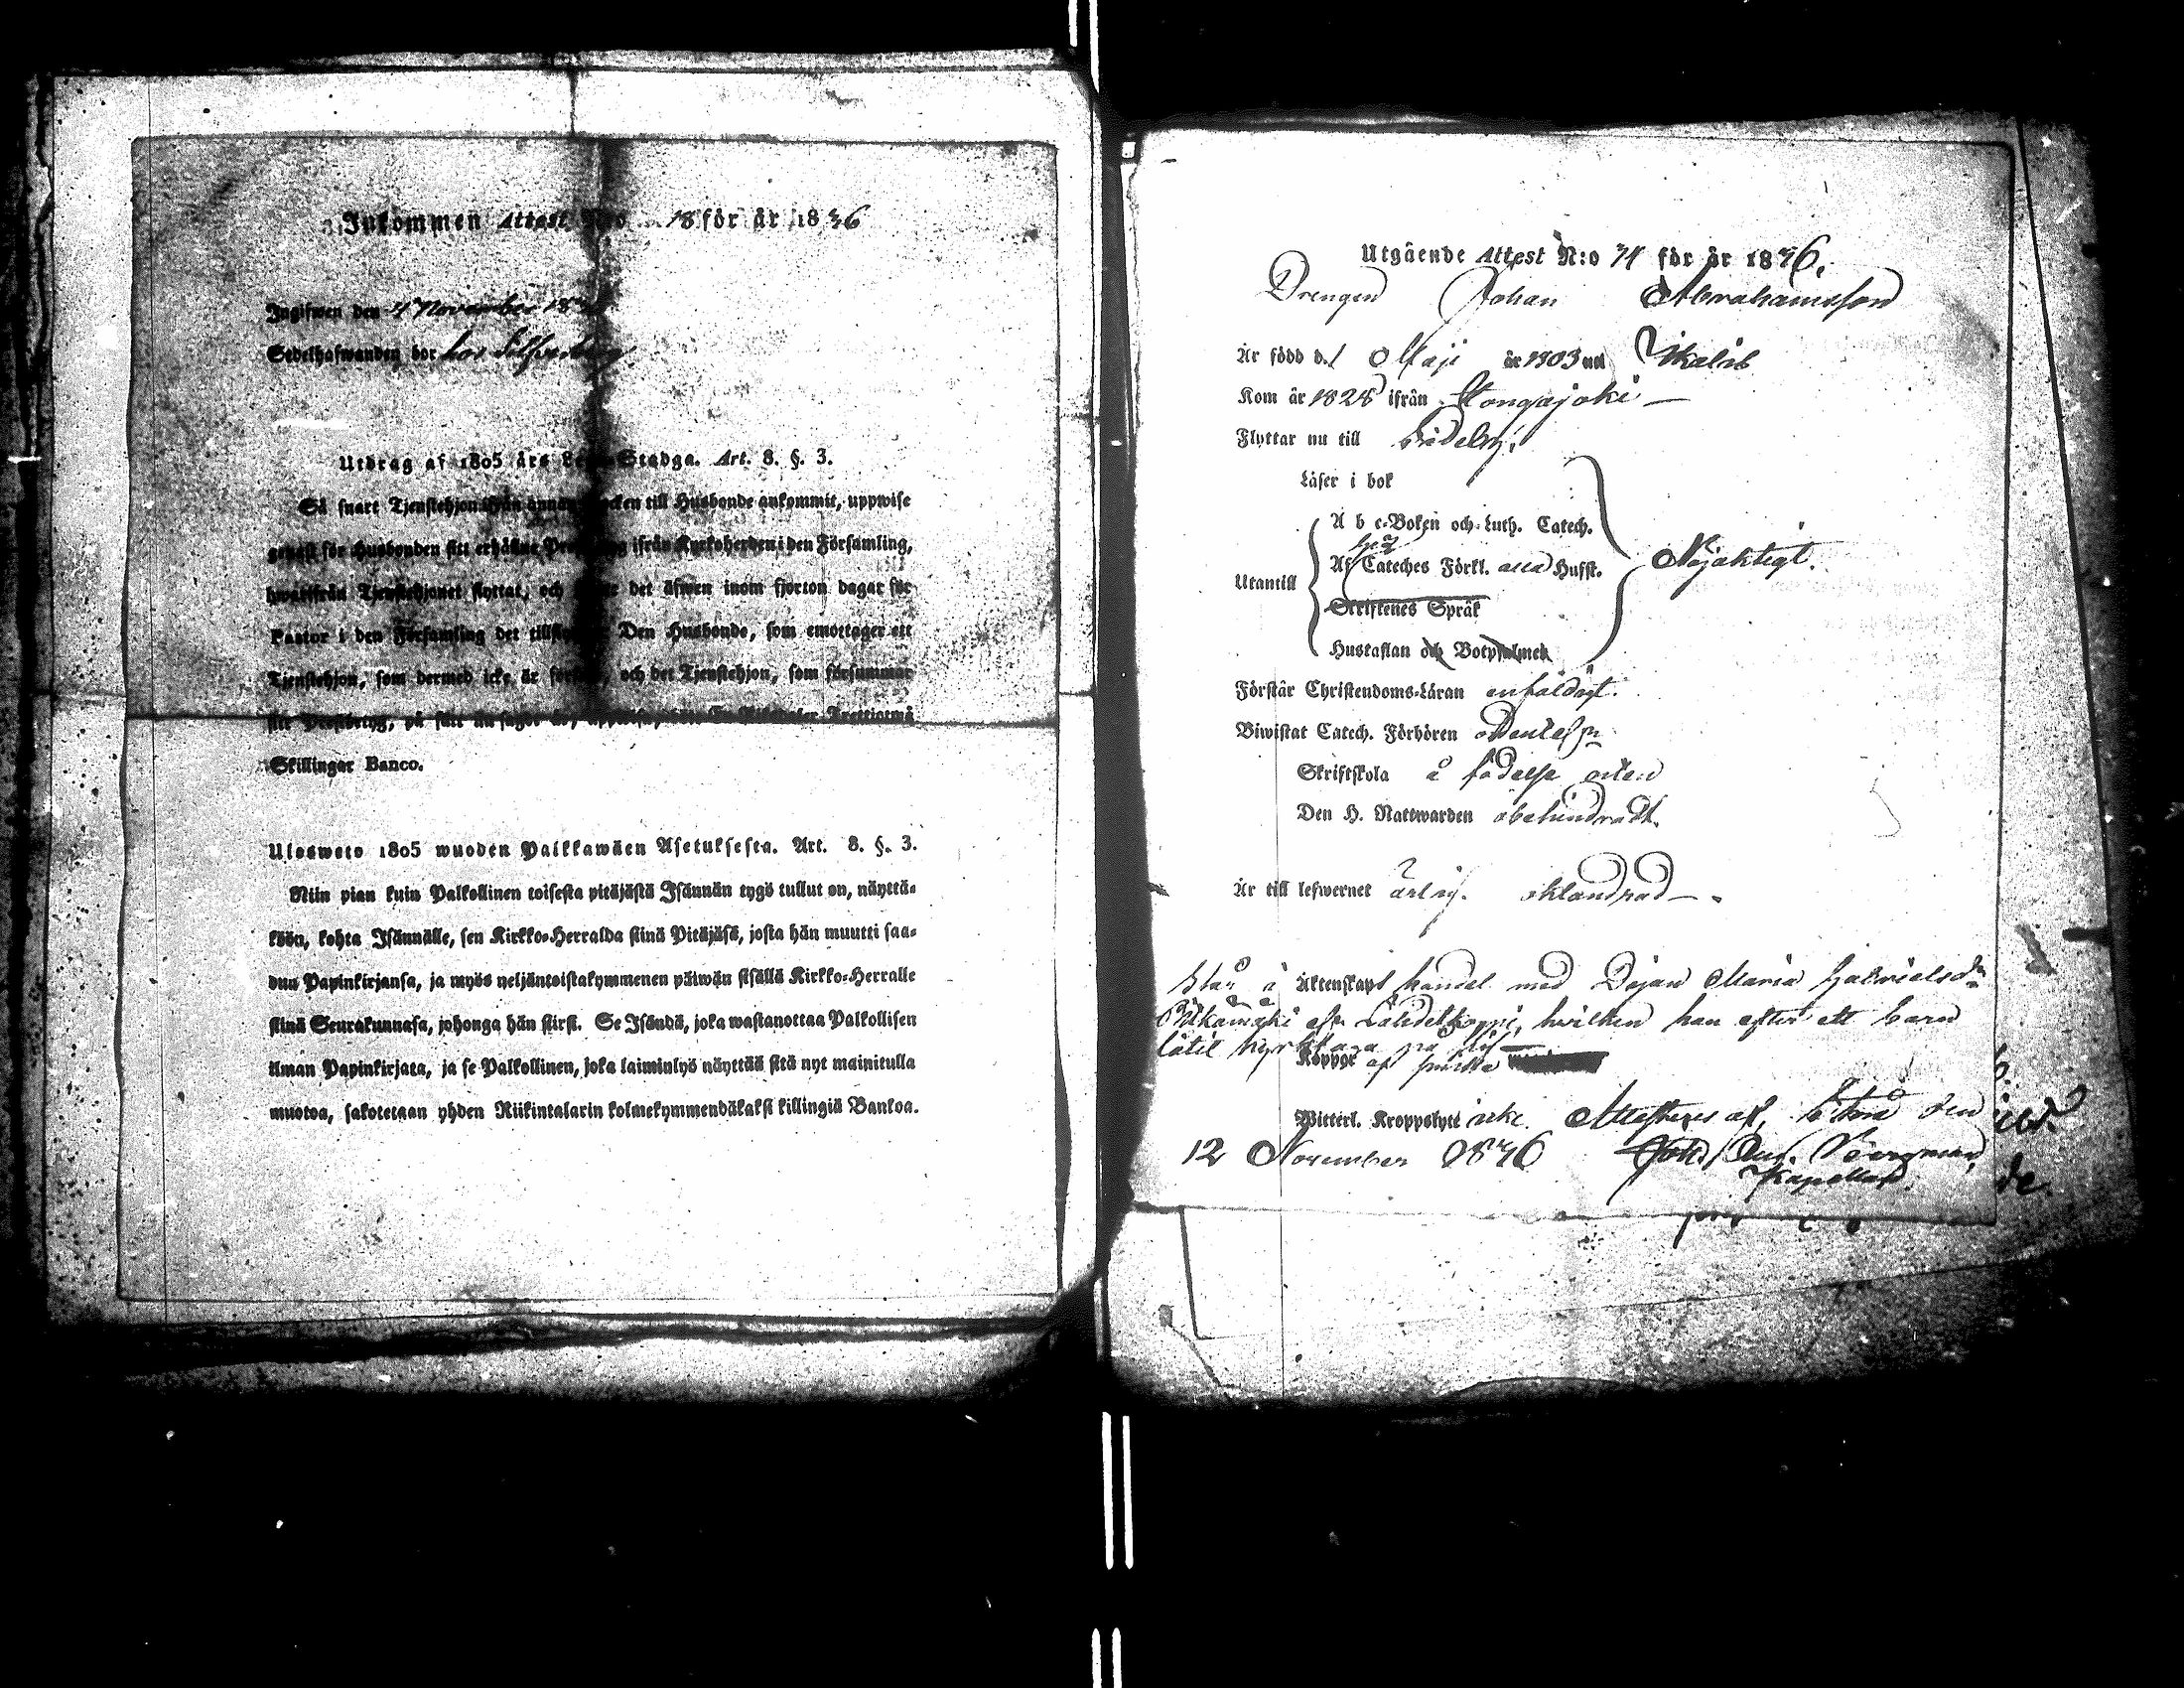 Inkommen Attest N:o 18 för år 1836
Ingifwen den 4 November 18
Sedelhafwanden bor hos
Utdrag af 1805 års Stadga. Art. 8. §. 3.
Så snart Tjenstehjon ifrån annan till Husbonde ankommit, uppwise
genast för Husbonden sitt erhållne ifrån Kyrkoherden i den Församling,
hwarifrån Tjenstehjonet flyttat, och det äfwen inom fjorton dagar för
Pastor i den Församling det Den Husbonde, som emottager ett
Tjenstehjon, som dermed icke är och det Tjenstehjon, som försummar
sitt Prestbetyg, på sätt nu sagdt är, Trettiotwå
Skillingar Banco.
Ulosweto 1805 wuoden Palkkawäen Asetuksesta. Art. 8. §. 3.
Niin pian kuin Palkollinen toisesta pitäjästä Isännän tygö tullut on, näyttä-
köön, kohta Isännälle, sen Kirkko-Herralda siinä Pitäjäsä, josta hän muutti saa-
dun Papinkirjansa, ja myös neljäntoistakymmenen päiwän sisällä Kirkko-Herralle
siinä Seurakunnasa, johonga hän siirsi. Se Isändä, joka wastanottaa Palkollisen
ilman Papinkirjata, ja se Palkollinen, joka laiminlyö näyttää sitä nyt mainitulla
muotoa, sakotetaan yhden Riikintalarin kolmekymmendäkaksi killingiä Bankoa.
Utgående Attest N:o 34 för år 1836.
Drengen Johan Abrahamsson
Är född d. 1 Maji år 1803 uti Ikalis
Kom år 1828 ifrån Kongajoki
Flyttar nu till
Läser i bok
A b c-Boken och Luth. Catech.
Af Cateches Förkl. alla Husst.
Utantill
Nöjaktigt.
Skriftenes Språk
Hustaflan och Botpsalmen
Förstår Christendoms-Läran enfäldigt.
Biwistat Catech. Förhören
Skriftskola å födelse orten
Den H. Nattwarden obehindradt.
Är till lefwernet ärlig. oklandrad
Står i Äktenskaps handel med Pigan Maria Gabrielsdr
hvilken han efter ett barn
låtit kyrktaga på sig
Koppor af
Witterl. Kroppslyte icke. Attesteras af, den
12 November 1836 Joh. Bergman,
Kapellan.